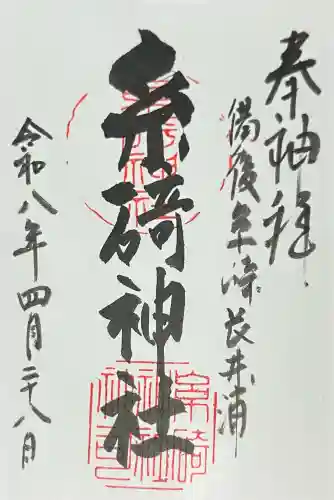 奉神拝
備後糸崎長井浦
糸碕神社
令和八年四月二十八日